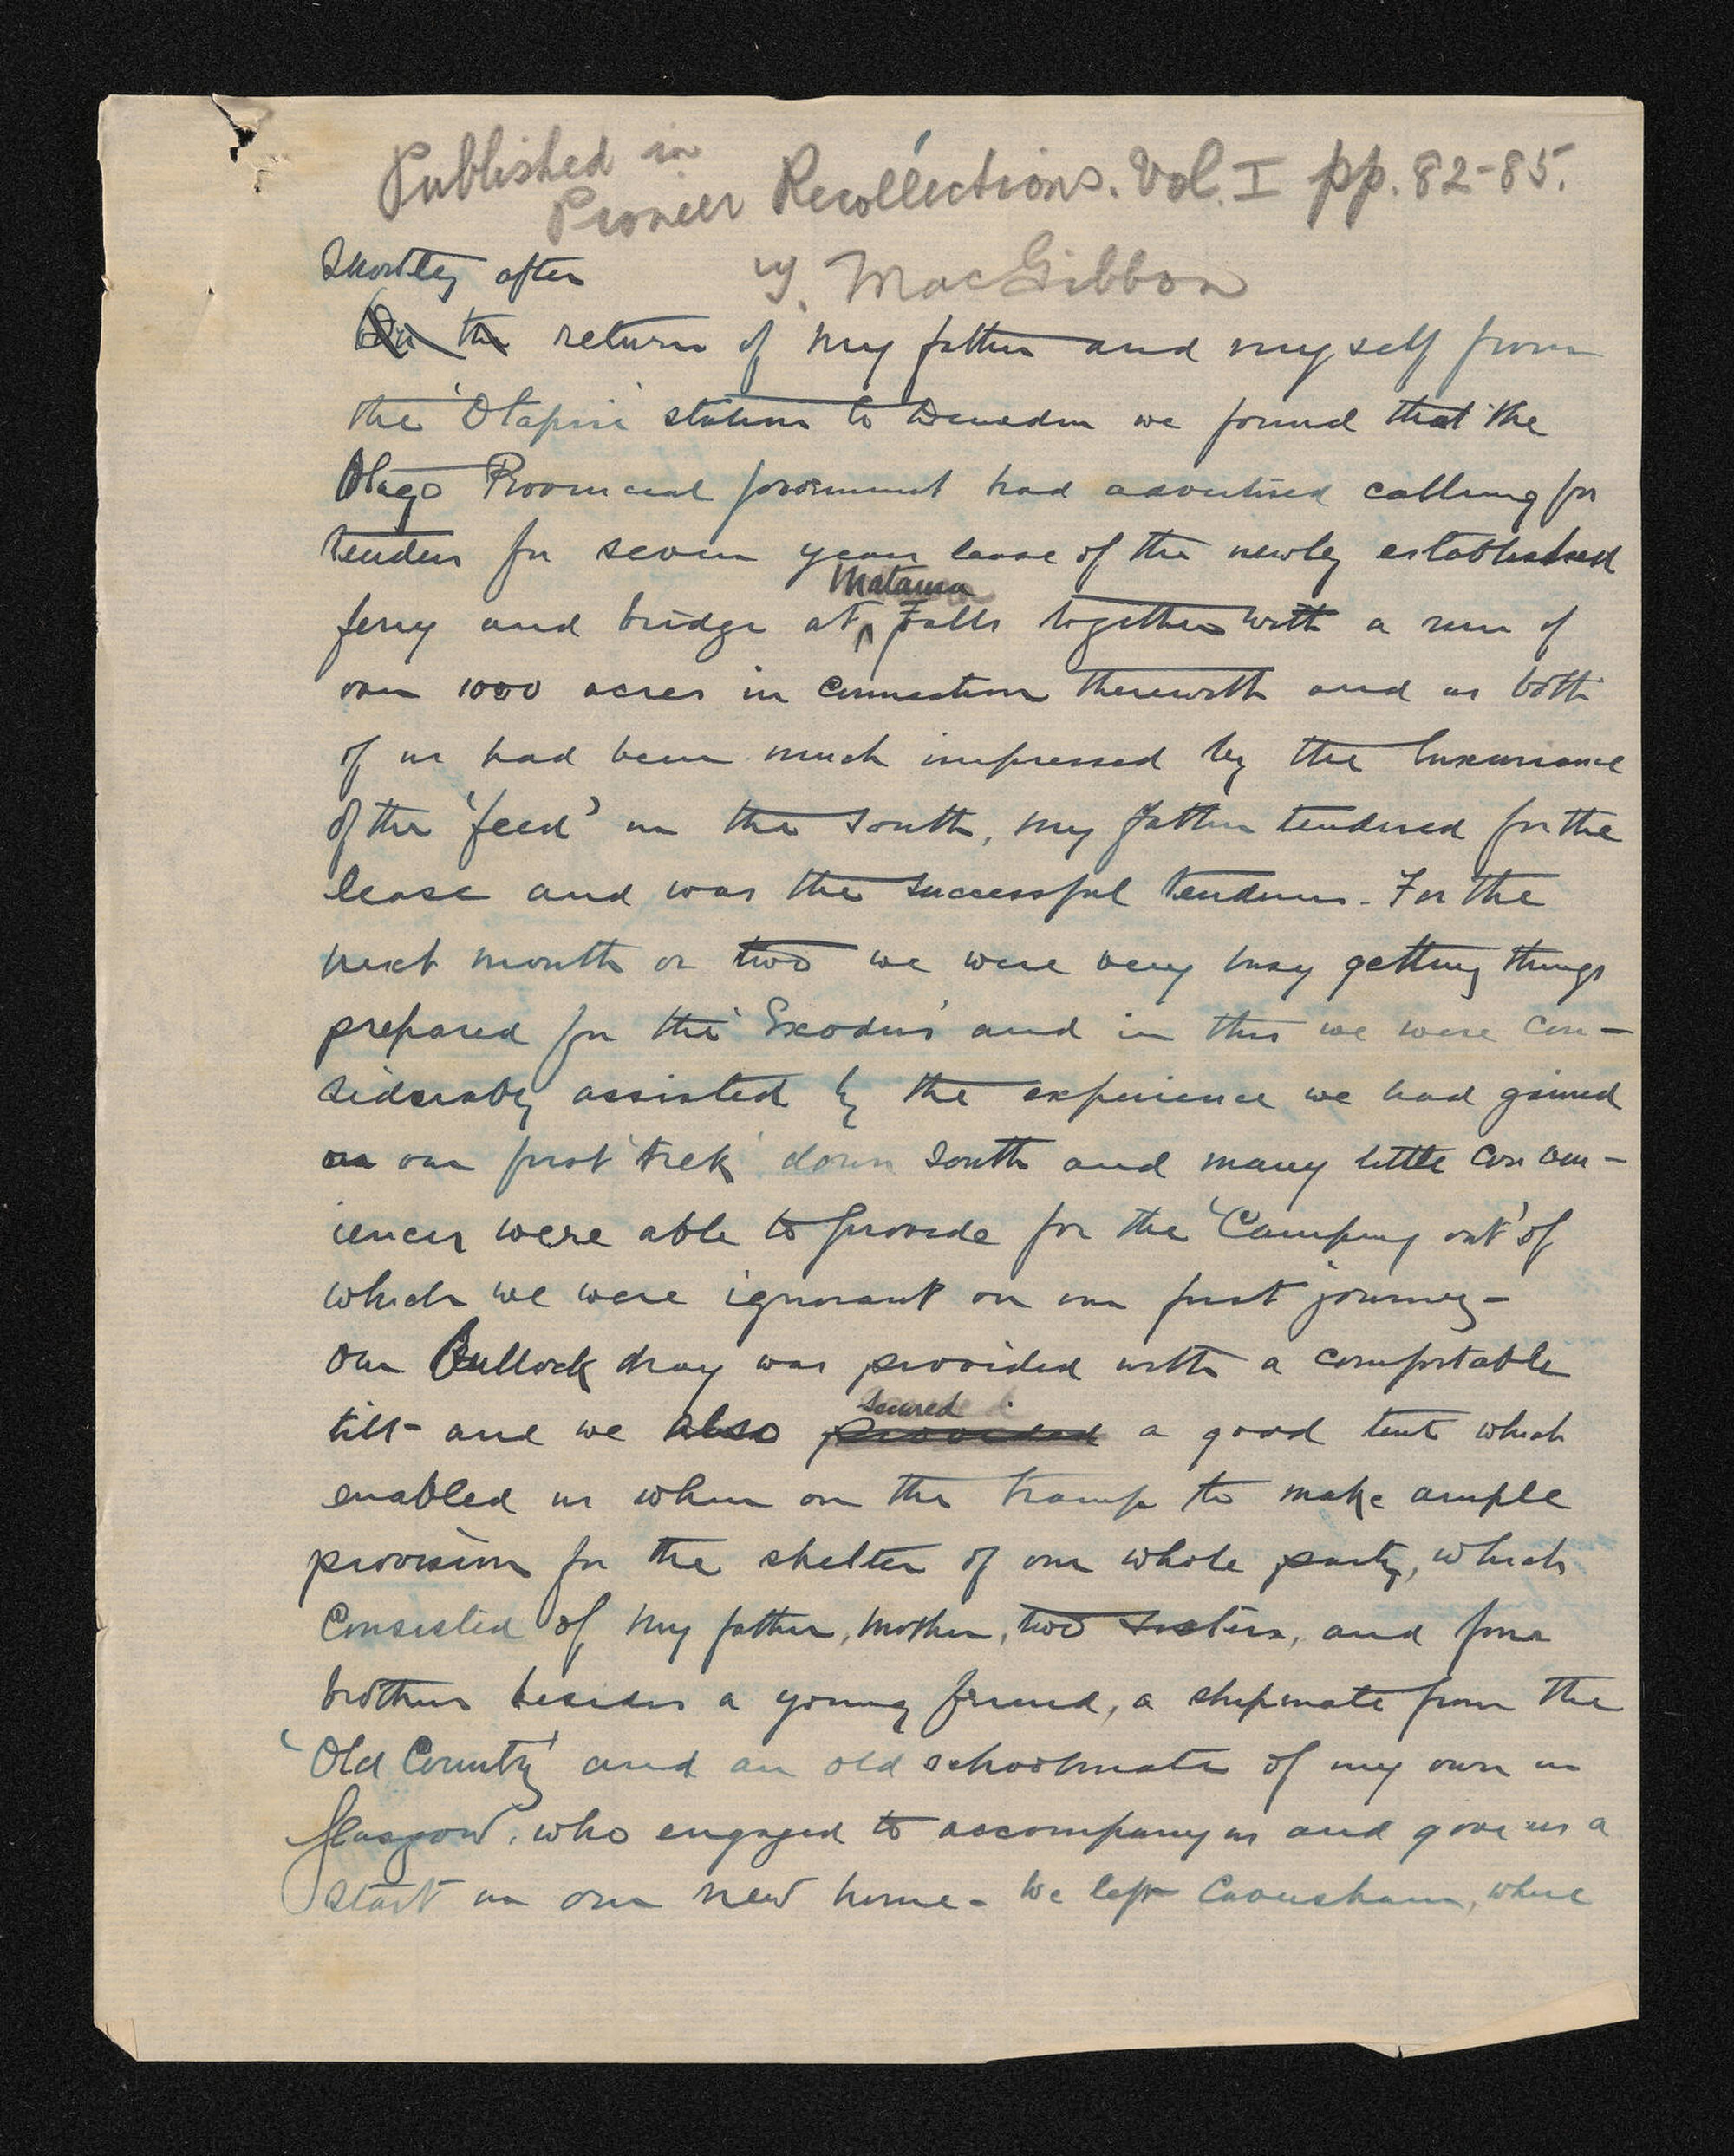 Published in
Pioneer Recollections. Vol. I pp. 82-85.
Shortly after
MacGibbon
On the return of my father and myself from
the 'Otapiri' station to Dunedin we found that the
Otago Provincial Government had advertised calling for
tenders for seven years lease of the newly established
Mataura
ferry and bridge at Falls together with a run of
over 1000 acres in connection therewith and as both
of us had been much impressed by the luxuriance
of the 'feed' in the south, my father tendered for the
lease and was the successful tenderer. For the
next month or two we were very busy getting things
prepared for the 'Exodus' and in this we were con-
siderably assisted by the experience we had gained
on our first 'trek' down south and many little conven-
iences were able to provide for the 'Camping out' of
which we were ignorant on our first journey-
Our Bullock dray was provided with a comfortable
secured
tilt- and we also provided a good tent which
enabled us when on the tramp to make ample
provision for the shelter of our whole party, which
Consisted of my father, mother, two sisters, and four
brothers besides a young friend, a shipmate from the
'Old Country' and an old schoolmate of my own in
Glasgow, who engaged to accompany us and give us a
start in our new home- We left Caversham, where